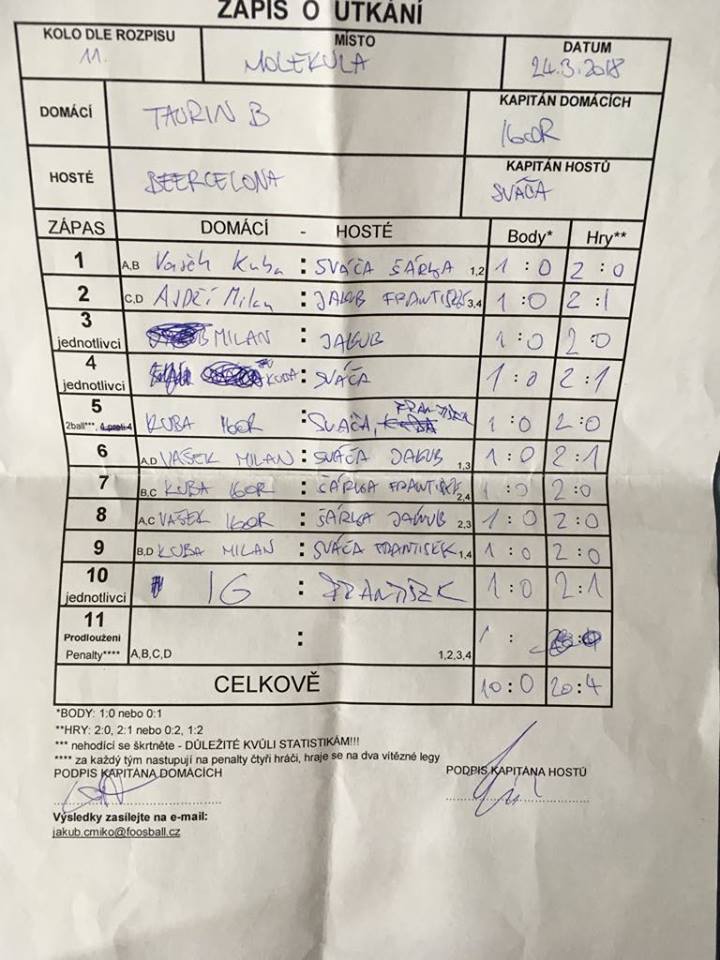 ZÁPIS O UTKÁNÍ
KOLO DLE ROZPISU MÍSTO DATUM
11. MOLEKULA 24.3.2018
DOMÁCÍ TAURIN B KAPITÁN DOMÁCÍCH
IGOR
HOSTÉ BEERCELONA KAPITÁN HOSTŮ
SVÁČA
ZÁPAS DOMÁCÍ - HOSTÉ Body* Hry**
1 A,B Vašek Kuba : SVÁČA ŠÁRKA 1,2 1 : 0 2 : 0
2 C,D Milan : JAKUB FRANTIŠEK 3,4 1 : 0 2 : 1
3 jednotlivci MILAN : JAKUB 1 : 0 2 : 0
4 jednotlivci KUBA : SVÁČA 1 : 0 2 : 1
5 2ball***, 4 proti 4 KUBA IGOR : SVÁČA, FRANTIŠEK 1 : 0 2 : 0
6 A,D VAŠEK MILAN : SVÁČA JAKUB 1,3 1 : 0 2 : 1
7 B,C KUBA IGOR : ŠÁRKA FRANTIŠEK 2,4 1 : 0 2 : 0
8 A,C VAŠEK IGOR : ŠÁRKA JAKUB 2,3 1 : 0 2 : 0
9 B,D KUBA MILAN : SVÁČA FRANTIŠEK 1,4 1 : 0 2 : 0
10 jednotlivci IG : FRANTIŠEK 1 : 0 2 : 1
11 Prodloužení : 1 :
Penalty**** A,B,C,D 1,2,3,4
CELKOVĚ 10 : 0 20 : 4
*BODY: 1:0 nebo 0:1
**HRY: 2:0, 2:1 nebo 0:2, 1:2
*** nehodící se škrtněte - DŮLEŽITÉ KVŮLI STATISTIKÁM!!!
**** za každý tým nastupují na penalty čtyři hráči, hraje se na dva vítězné legy
PODPIS KAPITÁNA DOMÁCÍCH PODPIS KAPITÁNA HOSTŮ
Výsledky zasílejte na e-mail:
jakub.cmiko@foosball.cz